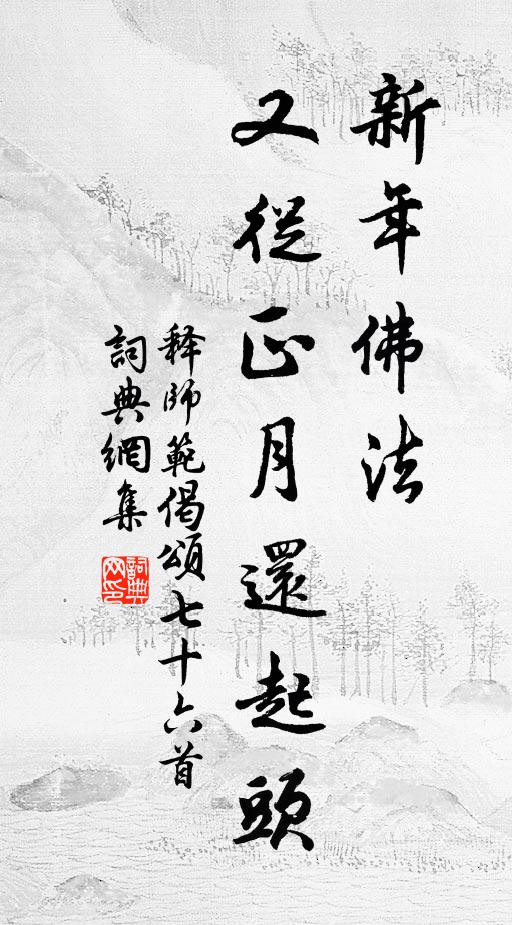 新年佛法
又從正月還起頭
釋師範偈頌七十六首
詞典網集
詞典网印